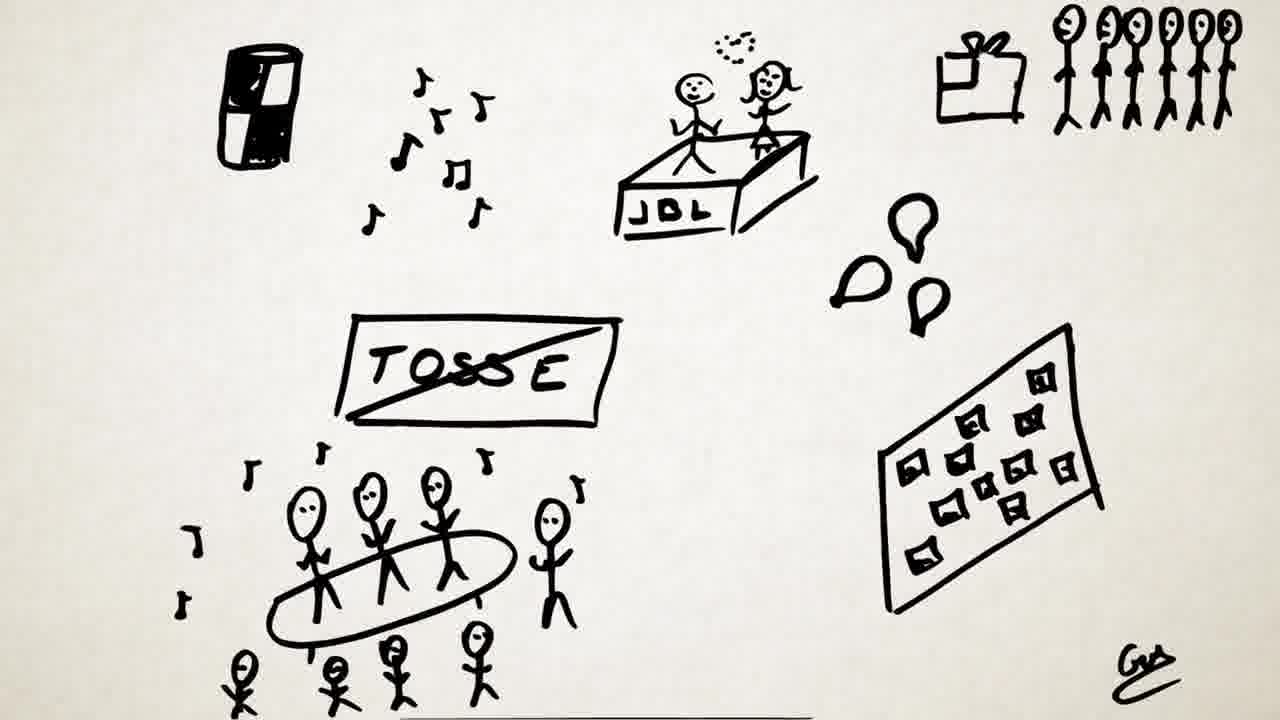 JBL
TOSSE
Gus